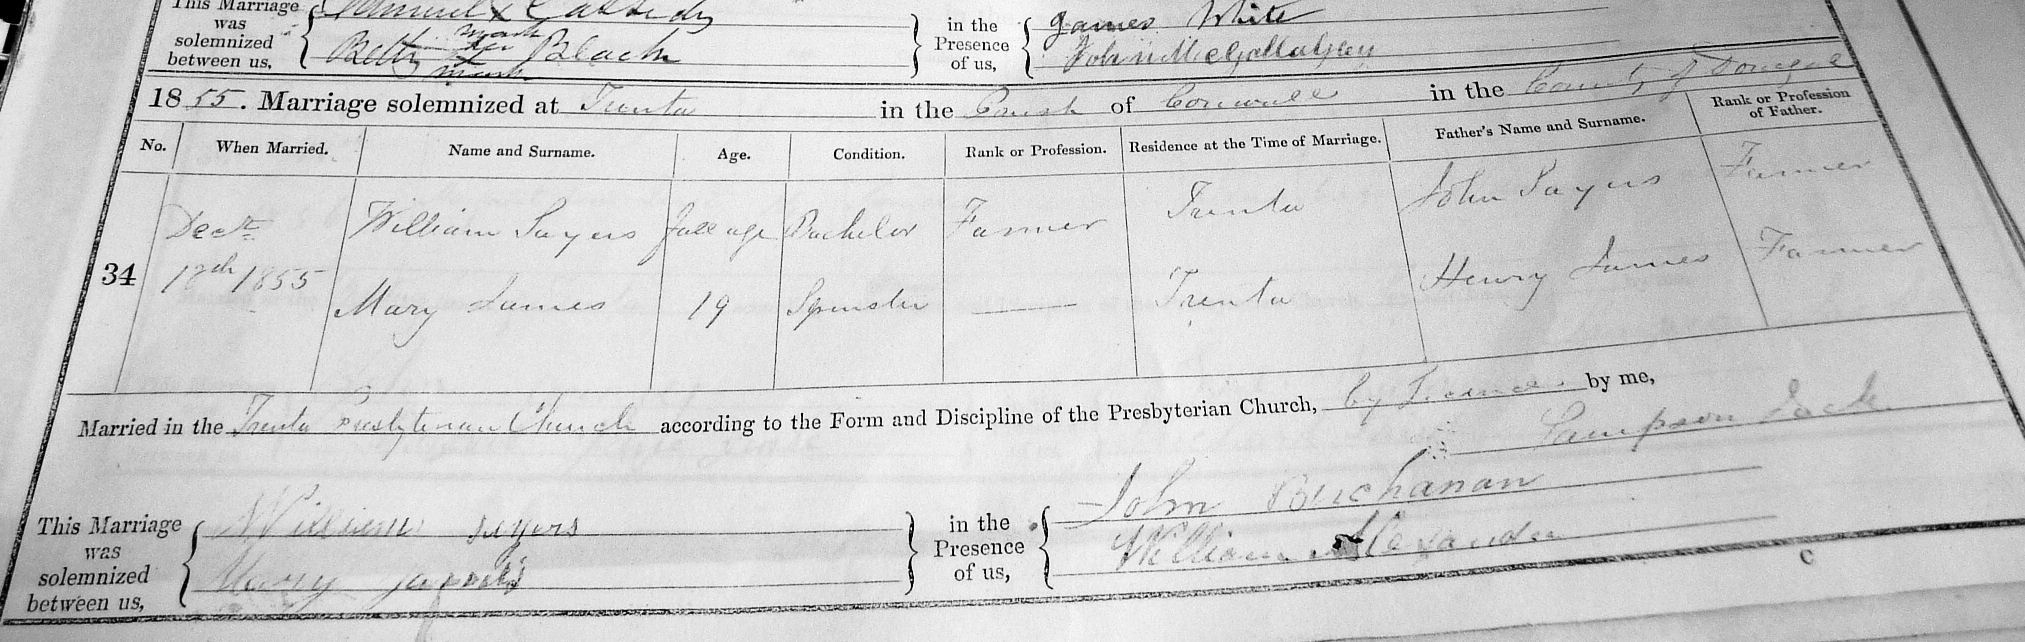 This Marriage was solemnized between us, Samuel X Cassidy
mark
Betty her X mark Black
in the Presence of us, James White
John McGallaghey
1855. Marriage solemnized at Trenta in the Parish of Conwall in the County of Donegal
No. When Married. Name and Surname. Age. Condition. Rank or Profession. Residence at the Time of Marriage. Father's Name and Surname. Rank or Profession of Father.
34 Decr. William Sayers full age Bachelor Farmer Trenta John Sayers Farmer
18th 1855 Mary James 19 Spinster — Trenta Henry James Farmer
Married in the Trenta Presbyterian Church according to the Form and Discipline of the Presbyterian Church, by License. by me,
Sampson Jack
This Marriage was solemnized between us, William Sayers
Mary James
in the Presence of us, John Buchanan
William Alexander
C